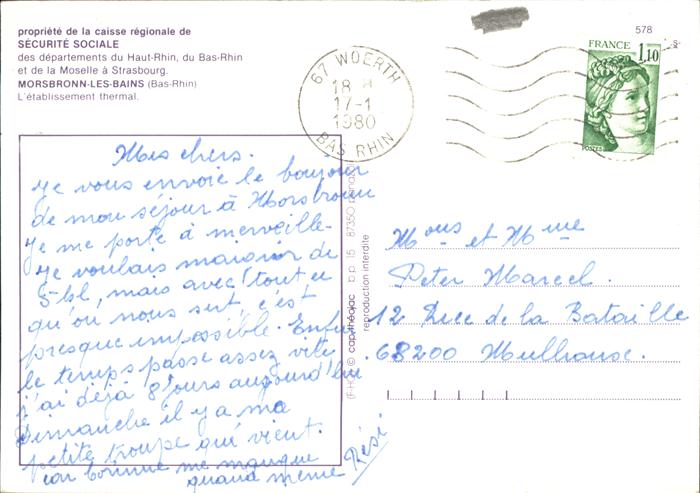 propriété de la caisse régionale de
SÉCURITÉ SOCIALE
des départements du Haut-Rhin, du Bas-Rhin
et de la Moselle à Strasbourg.
MORSBRONN-LES-BAINS (Bas-Rhin)
L'établissement thermal.
67 WOERTH
18 H
17-1
1980
BAS RHIN
578
FRANCE
1,10
POSTES
Mes chers.
Je vous envoie le bonjour
de mon séjour à Morsbronn
Je me porte à merveille.
Je voulais maigrir de
5 kl, mais avec tout ce
qu'on nous sert, c'est
presque impossible. Enfin
le temps passe assez vite.
j'ai déjà 8 jours aujourd'hui
Dimanche il y a ma
petite troupe qui vient.
car Corinne me manque
quand même Rési
b.p. 15 87350
reproduction interdite
Mons et Mme
Peter Marcel.
12 Rue de la Bataille
68200 Mulhouse.